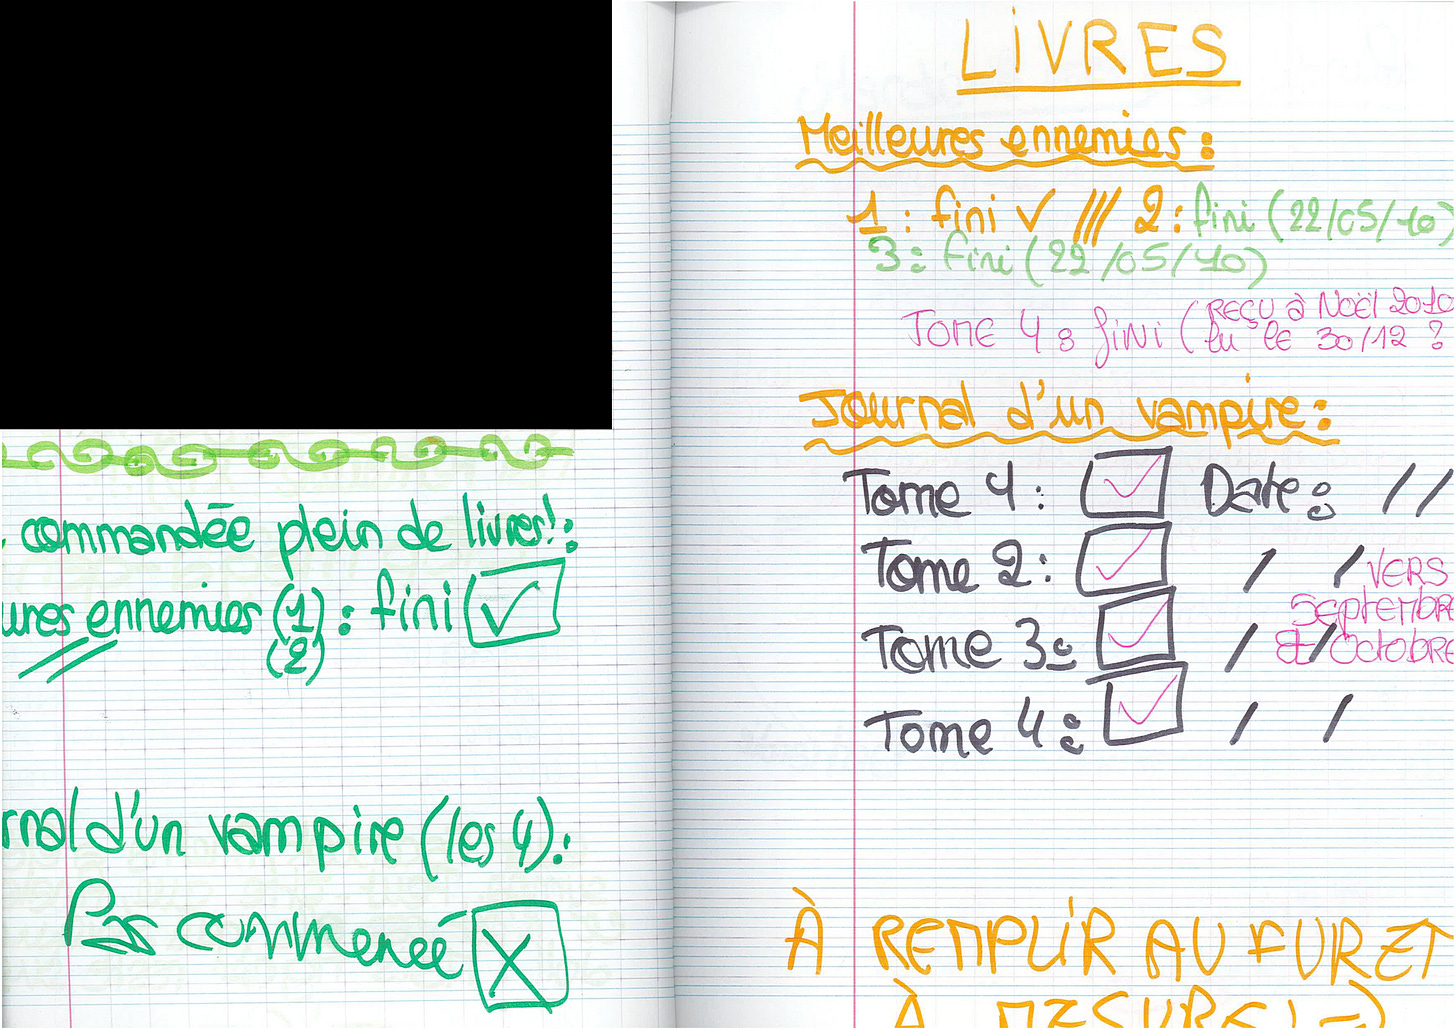 commandée plein de livres! :
ures ennemies (1) : fini ✓
(2)
rnal d'un vampire (les 4) :
Pas commencé X
LIVRES
Meilleures ennemies :
1 : fini ✓ /// 2 : fini (22/05/10)
3 : fini (22/05/10)
TOME 4 : fini (REÇU à NOËl 2010
lu lE 30/12 ?
Journal d'un vampire :
Tome 1 : ✓ Date : / /
Tome 2 : ✓ / /
VERS
Septembre
Tome 3 : ✓ / /
et Octobre
Tome 4 : ✓ / /
À REMPLIR AU FUR ET
À MESURE ! =)